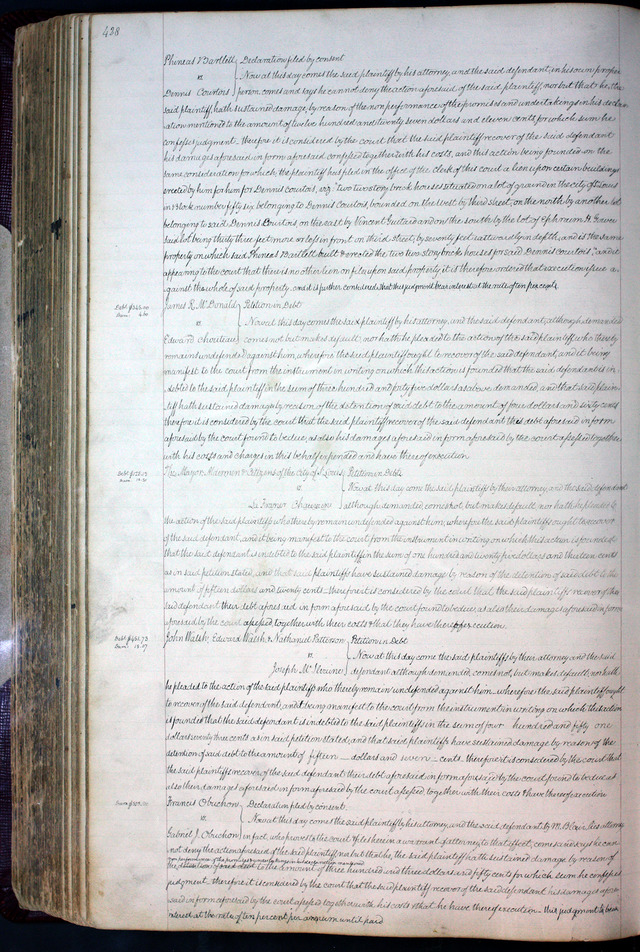 438
Phineas Bartlett } Declaration filed by consent
vs } Now at this day comes the said plaintiff by his attorney, and the said defendant, in his own proper
Dennis Courtois } person comes and says he cannot deny the action aforesaid of the said plaintiff, nor but that he the
said plaintiff, hath sustained damage, by reason of the non performance of the promises and undertakings in his declar
ation mentioned to the amount of twelve hundred and twenty seven dollars and eleven cents for whole sum he
confesses judgment. therefore it is considered by the court that the said plaintiff recover of the said defendant
his damages aforesaid in form aforesaid confessed together with his costs, and this action being founded on the
same consideration for which the plaintiff has filed in the office of the clerk of this court a lien upon certain buildings
erected by him for Dennis Courtois, viz: two two story brick houses situated on a lot of ground in the city of St Louis
in Block number fifty six belonging to Dennis Courtois, bounded on the west by Third Street, on the north by another lot
belonging to said Dennis Courtois, on the east by Vincent Guitard and on the south by the lot of Ephraim
said lot being thirty three feet more or less in front on third street, by seventy feet eastwardly in depth, and is the same
property on which said Phineas Bartlett built & erected the two two story brick houses for said Dennis Courtois, and it
appearing to the court that there is no other lien on file upon said property it is therefore ordered that execution issue a-
gainst the whole of said property. and it is further considered that this judgment bear interest at the rate of ten per cent p.a.
Debt $345.00
Dam. 4.60
James R. McDonald } Petition in Debt
vs } Now at this day comes the said plaintiff by his attorney, and the said defendant, although demanded
Edward Chouteau } comes not but makes default, nor hath he pleaded to the action of the said plaintiff, who thereby
remains undefended against him, wherefore the said plaintiff ought to recover of the said defendant, and it being
manifest to the court from the instrument in writing on which the action is founded that the said defendant is in-
debted to the said plaintiff in the sum of three hundred and forty five dollars as above demanded, and that said plain-
tiff hath sustained damage by reason of the detention of said debt to the amount of four dollars and sixty cents
therefore it is considered by the court that the said plaintiff recover of the said defendant this debt aforesaid in form
aforesaid by the court found to be due, as also his damages aforesaid in form aforesaid by the court assessed together
with his costs and charges in this behalf expended and have thereof execution.
Debt $125.13
Dam. 15.20
The Mayor, Aldermen & Citizens of the City of St Louis } Petition in Debt
vs } Now at this day come the said plaintiffs by their attorney and the said defendant
although demanded, comes not, but makes default, nor hath he pleaded to
the action of the said plaintiffs who thereby remain undefended against him, wherefore the said plaintiffs ought to recover
of the said defendant, and it being manifest to the court from the instrument in writing on which this action is founded
that the said defendant is indebted to the said plaintiffs in the sum of one hundred and twenty five dollars and thirteen cents
as in said petition stated, and that said plaintiffs have sustained damage by reason of the detention of said debt to the
amount of fifteen dollars and twenty cents. therefore it is considered by the court that the said plaintiffs recover of the
said defendant their debt aforesaid in form aforesaid by the court found to be due, as also their damages aforesaid in form
aforesaid by the court assessed together with their costs & that they have thereof execution.
Debt $451.73
Dam. 15.07
John Walsh, Edward Walsh, & Nathaniel Patterson } Petition in Debt
vs } Now at this day come the said plaintiffs by their attorney and the said
Joseph } defendant although demanded, comes not, but makes default, nor hath
he pleaded to the action of the said plaintiffs who thereby remain undefended against him, wherefore the said plaintiffs ought
to recover of the said defendant, and it being manifest to the court from the instrument in writing on which the action
is founded that the said defendant is indebted to the said plaintiffs in the sum of four hundred and fifty one
dollars seventy three cents as in said petition stated, and that said plaintiffs have sustained damage by reason of the
detention of said debt to the amount of fifteen dollars and seven cents. therefore it is considered by the court that
the said plaintiffs recover of the said defendant their debt aforesaid in form aforesaid by the court found to be due as
also their damages aforesaid in form aforesaid by the court assessed together with their costs & have thereof execution
Francis Obuchon } Declaration filed by consent.
vs } Now at this day comes the said plaintiff by his attorney, and the said defendant, by M. Blair his attorney
Gabriel J. Obuchon } in fact, who proves to the court & files herein a warrant of attorney to that effect, comes and says he can
not deny the action aforesaid of the said plaintiff, nor but that he, the said plaintiff hath sustained damage by reason of
non performance of the promises and undertakings in the declaration mentioned
the to the amount of three hundred and three dollars and fifty cents for which sum he confesses
judgment. therefore it is considered by the court that the said plaintiff recover of the said defendant his damages afore-
said in form aforesaid by the court assessed together with his costs & that he have thereof execution. this judgment to bear
interest at the rate of ten per cent per annum until paid